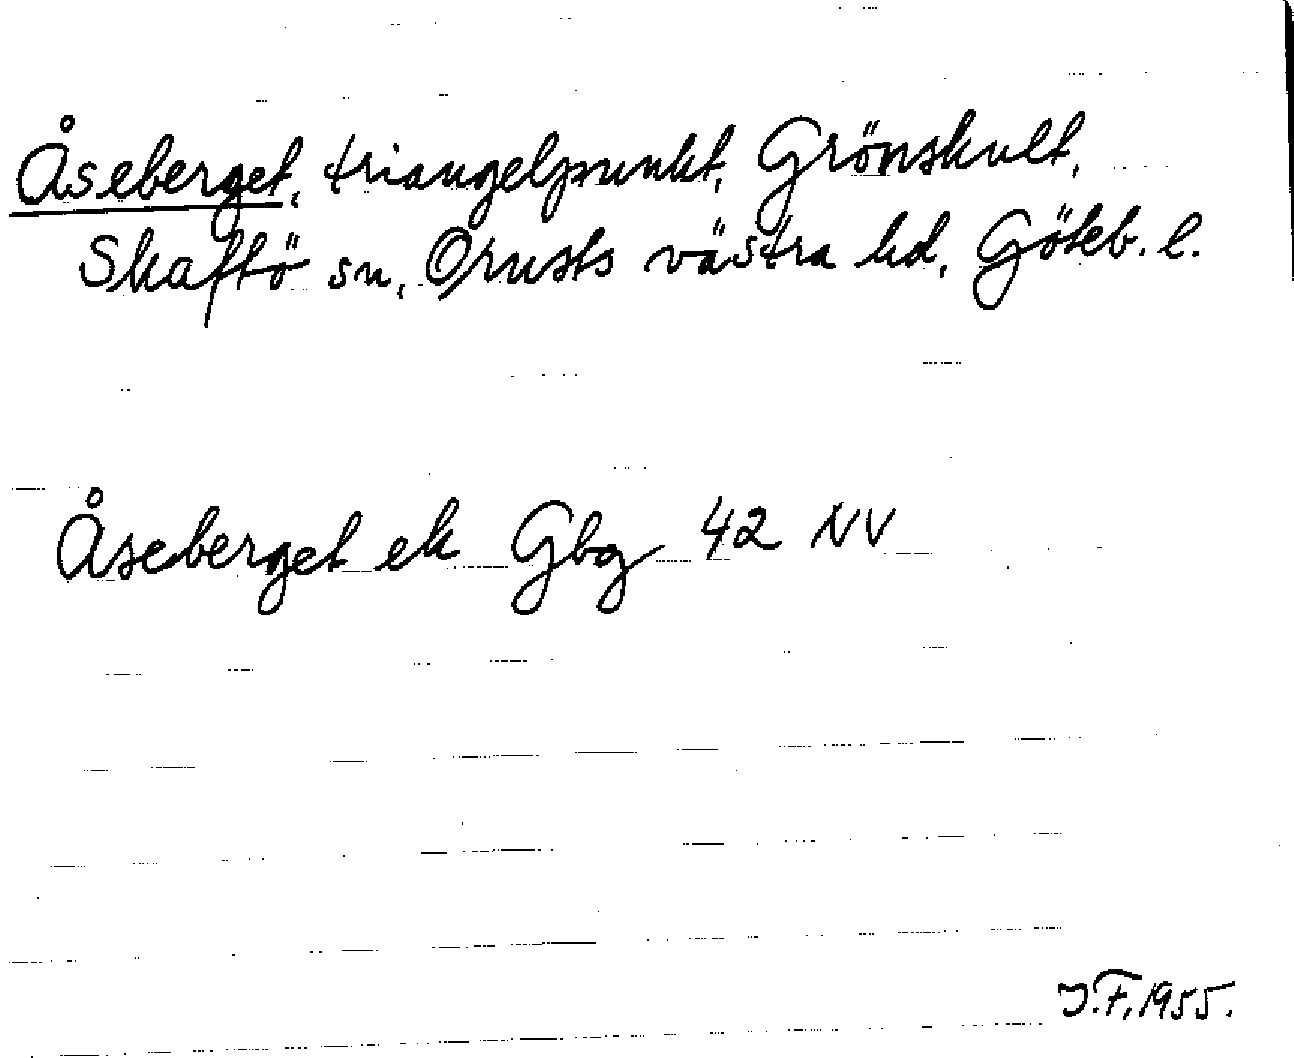 Åseberget, triangelpunkt, Grönskult,
Skaftö sn, Orusts västra hd, Göteb. l.
Åseberget ek Gbg 42 NV
J.F. 1955.